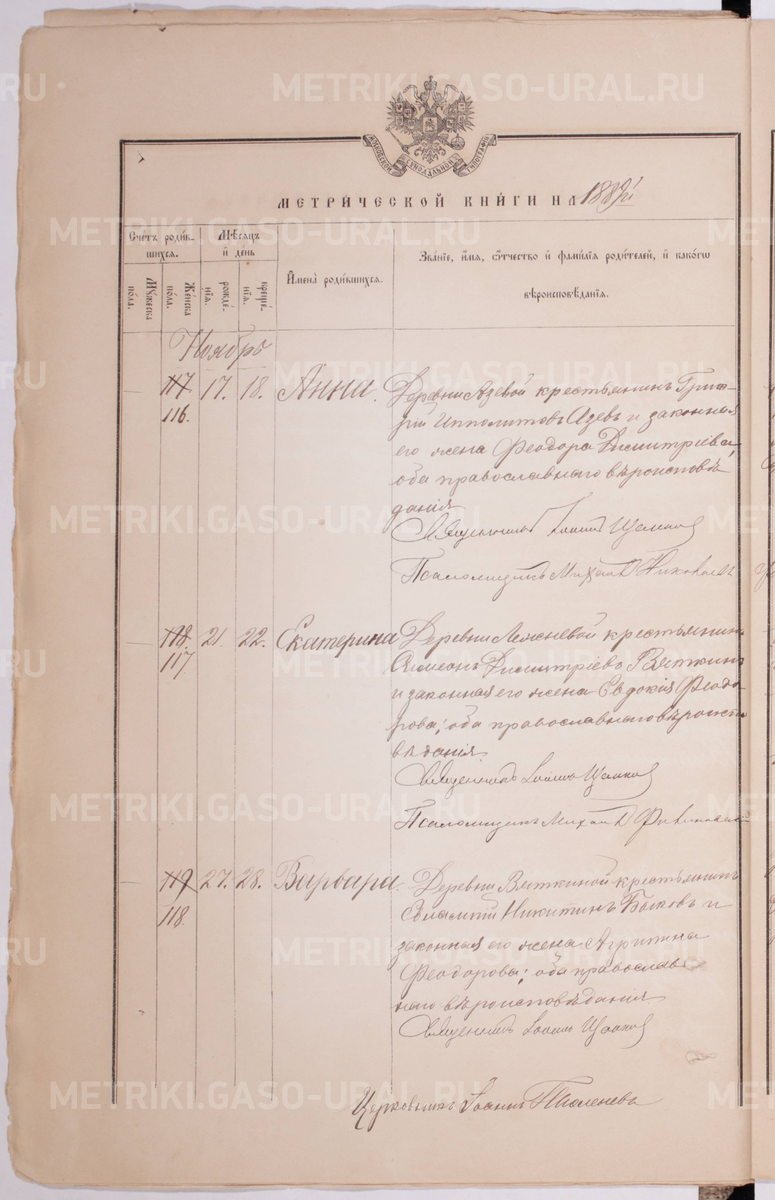 METRIKI.GASO-URAL.RU
МОСКОВСКОЙ СѴНОДАЛЬНОЙ ТИПОГРАФІИ
МЕТРИ́ЧЕСКОЙ КНИ́ГИ НА
Счетъ родив-
шихся.
Мѣсяцъ
и день
Имена родившихся.
Званіе, имя, отчество и фамилія родителей, и какого
вѣроисповѣданія.
Мужеска
пола.
Женска
пола.
рожде-
нія.
креще-
нія.
Ноябрь
117 17. 18. Анна. Деревни Азевой крестьянинъ Григо-
116. рій Ипполитовъ Азевъ и законная
его жена Феодора Димитріева,
оба православнаго вѣроисповѣ
данія
Священникъ Іоаннъ
Псаломщикъ Михаилъ
118 21. 22. Екатерина Деревни крестьянинъ
117 Симеонъ Димитріевъ Вяткинъ
и законная его жена Евдокія Феодо
рова; оба православнаго вѣроиспо
вѣданія
Священникъ Іоаннъ
Псаломщикъ Михаилъ
119 27. 28. Варвара Деревни Вяткиной крестьянинъ
118. Евлампій Никитинъ Быковъ и
законная его жена Агрипина
Феодорова; оба православ
наго вѣроисповѣданія
Священникъ Іоаннъ
Іоаннъ